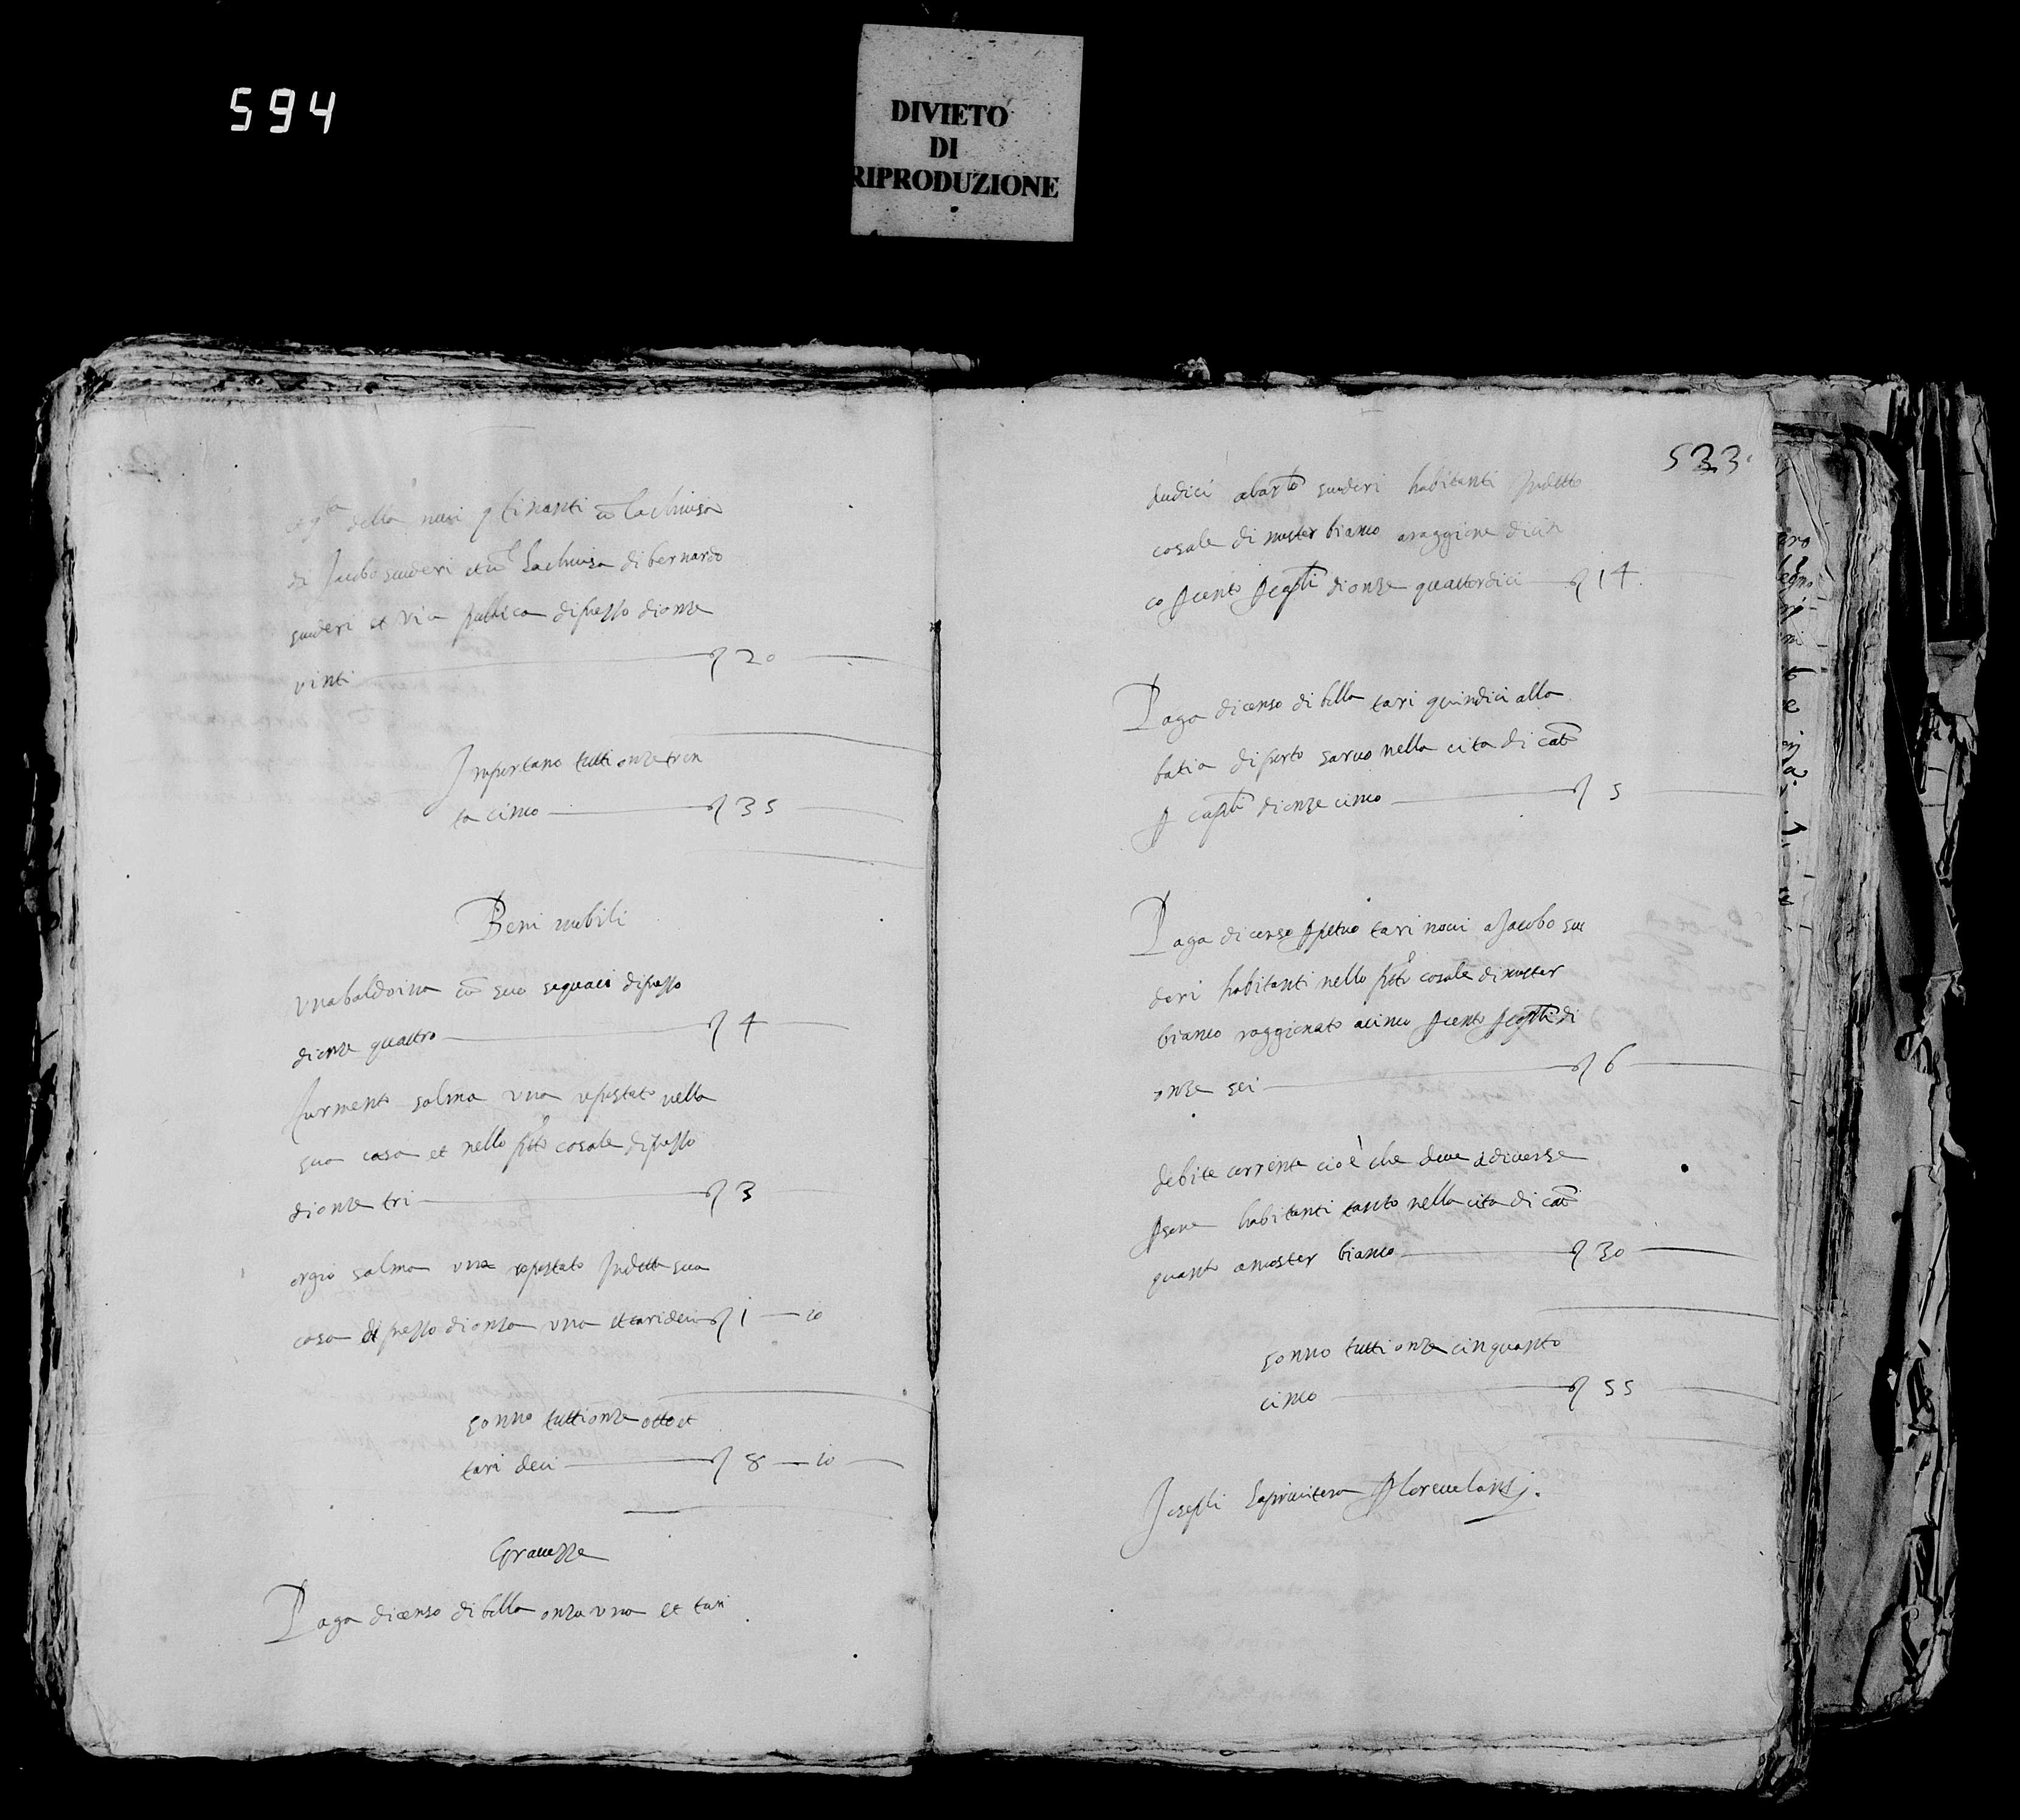 594
DIVIETO
DI
RIPRODUZIONE
della nuci
di Jacobo scuderi et cō la chiusa di bernardo
scuderi et via publica di prezzo di onze
vinti 20
Importano tutti onze tren
ta cinco 35
Beni mobili
Una baldoina cō suo di prezzo
di onze quattro 4
furmento salma una repostato nella
sua casa et nello ptto casale di prezzo
di onze tri 3
orgio salma una repostato in detta sua
casa di prezzo di onza una et tari deci 1 — 10
sonno tutti onze otto et
tari deci 8 — 10
Gravezze
Paga di censo di bolla onza una et tari
533
scuderi habitanti in detto
casale di muster bianco a raggione di cin
co p cento p capli di onze quattordici 14
Paga di censo di bolla tari quindici alla
batia di porto sarvo nella cita di cat
p capli di onze cinco 5
Paga di censo ppetuo tari novi a Jacobo scu
deri habitanti nello ptto casale di muster
bianco raggionato a cinco p cento p capli di
onze sei 6
debite corrente cioè che deve a diverse
psone habitanti tanto nella cita di cat
quanto a muster bianco 30
sonno tutti onze cinquanta
cinco 55
Joseppi